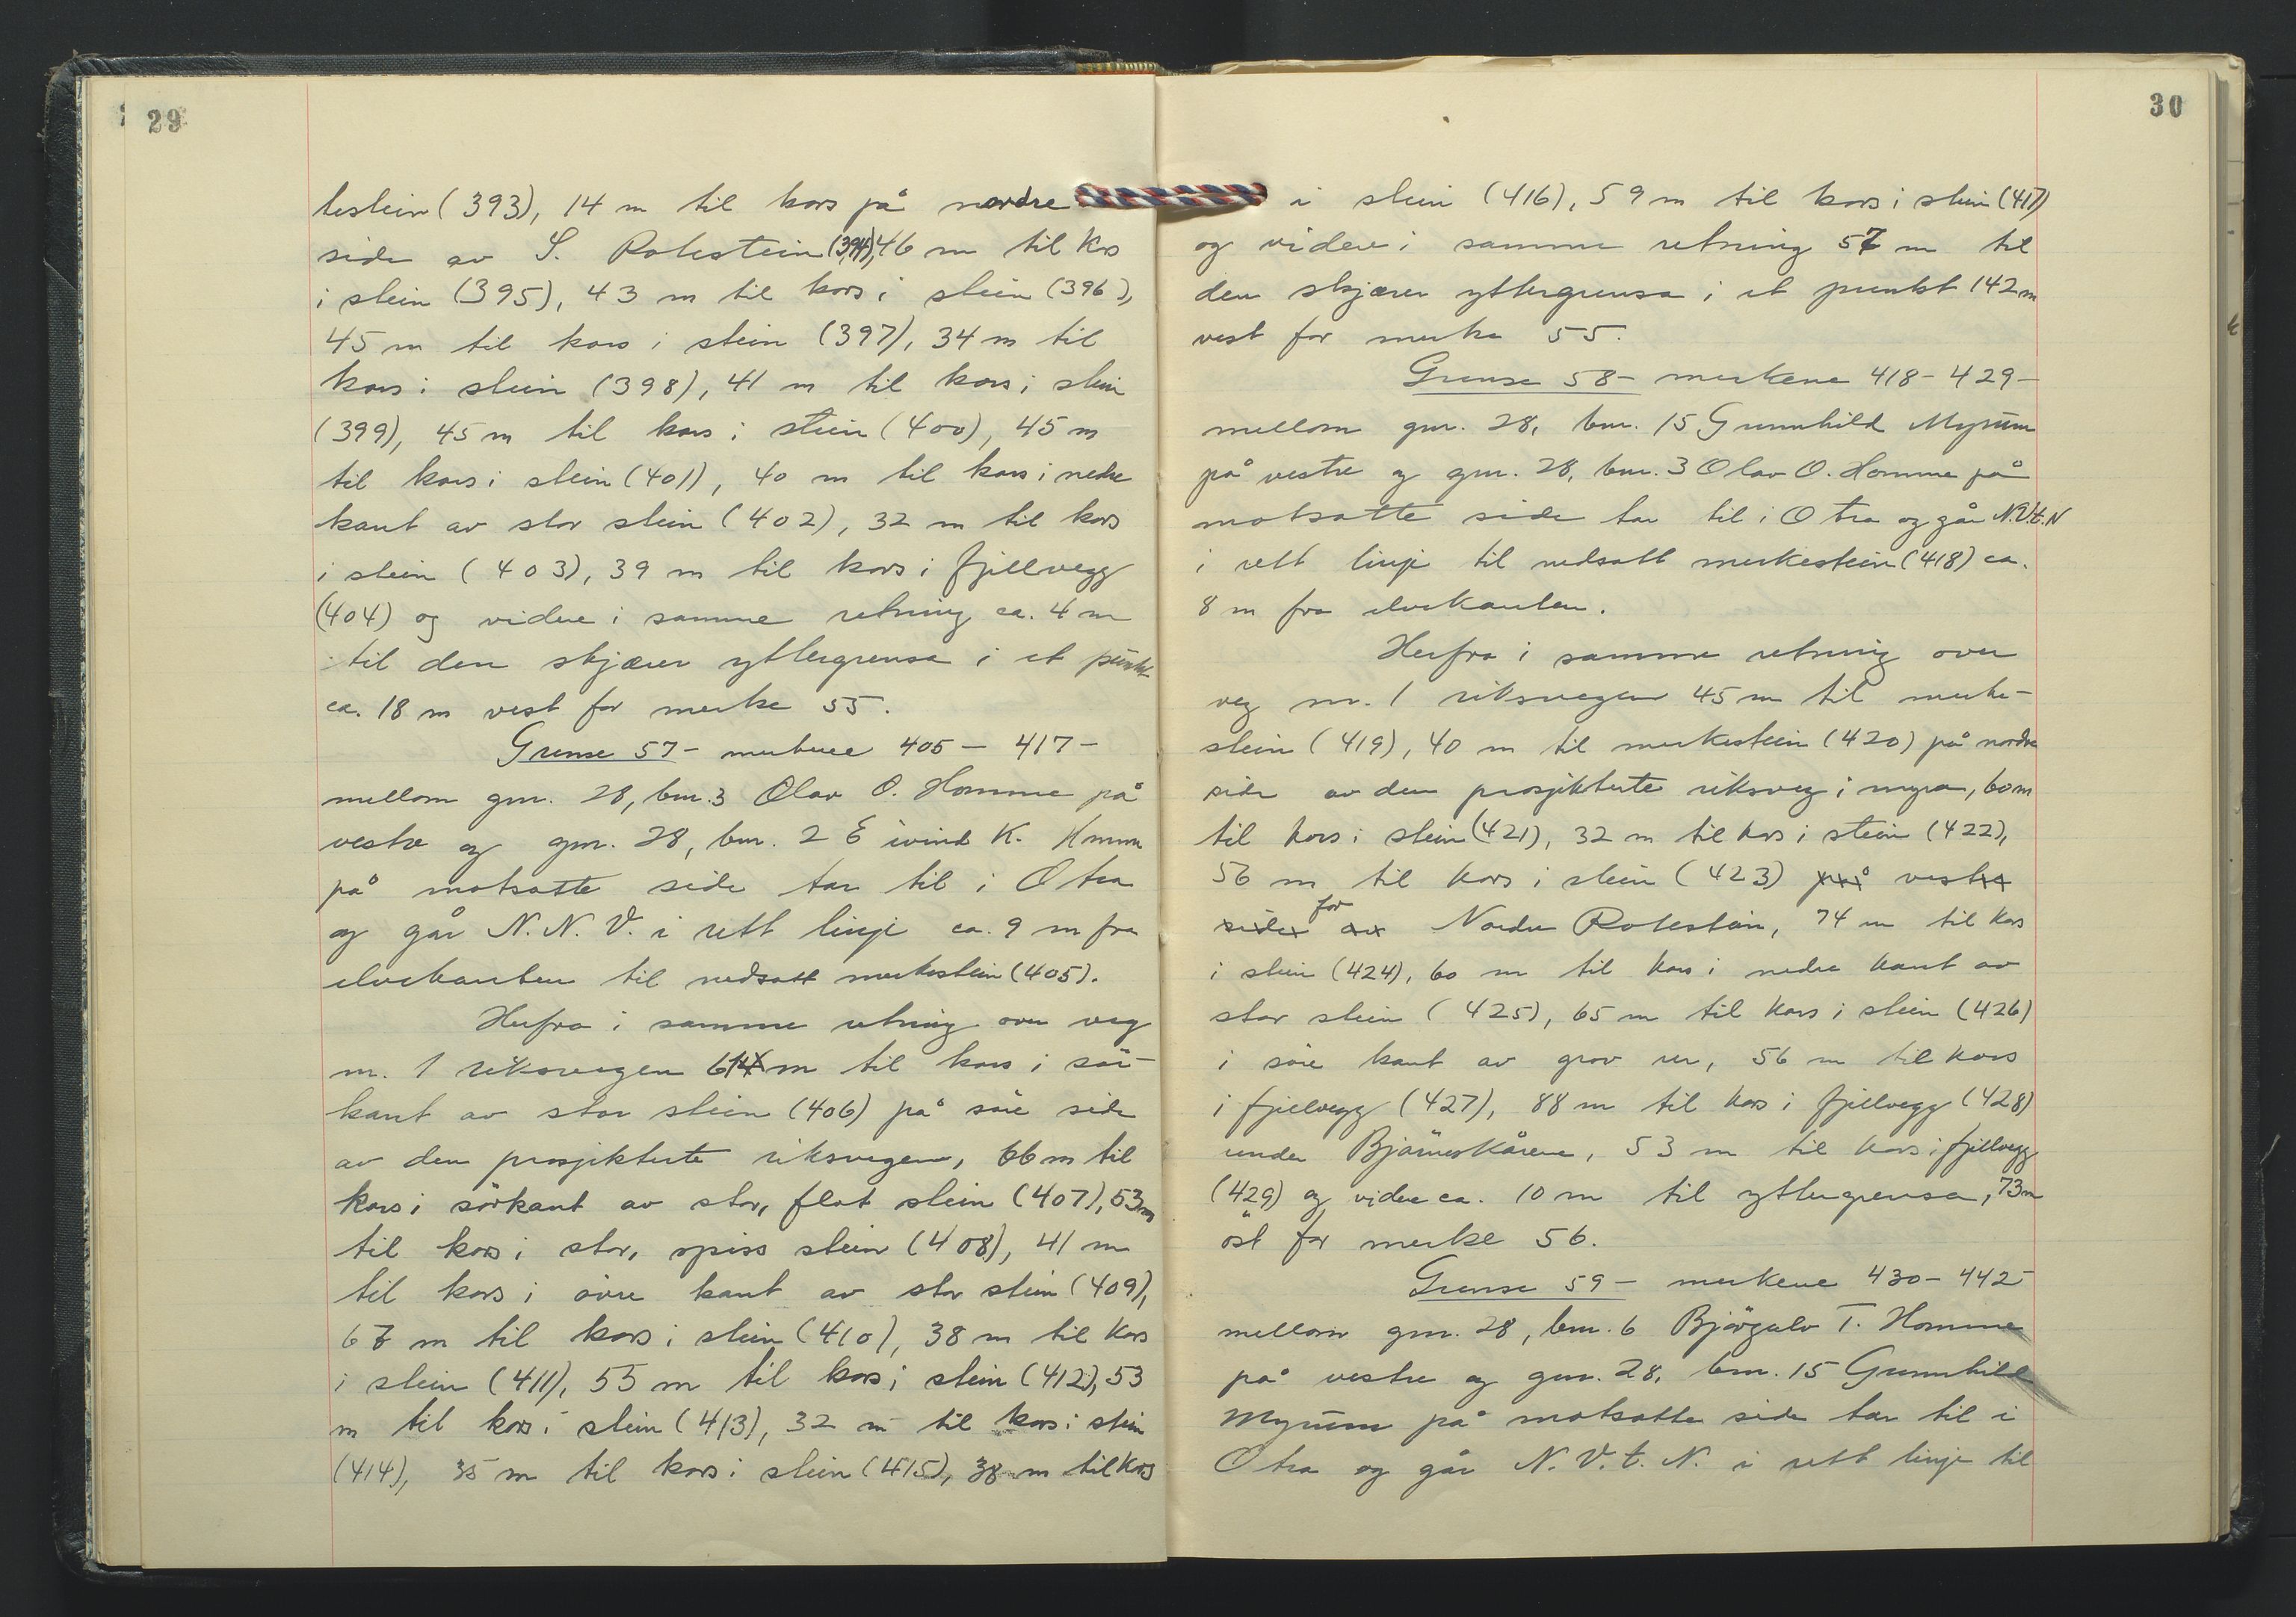 29
testein (393), 14 m til kors på nordre
side av S. Rolestein (394), 46 m til kors
i stein (395), 43 m til kors i stein (396),
45 m til kors i stein (397), 34 m til
kors i stein (398), 41 m til kors i stein
(399), 45 m til kors i stein (400), 45 m
til kors i stein (401), 40 m til kors i nedre
kant av stor stein (402), 32 m til kors
i stein (403), 39 m til kors i fjellvegg
(404) og videre i samme retning ca. 4 m
til den skjærer yttergrensa i et punkt
ca. 18 m vest for merke 55.
Grense 57 - merkene 405 - 417 -
mellom gnr. 28, bnr. 3 Olav O. Homme på
vestre og gnr. 28, bnr. 2 Eivind K. Homme
på motsatte side tar til i Otra
og går N. N. V. i rett linje ca. 9 m fra
elvekanten til nedsatt merkestein (405).
Herfra i samme retning over veg
nr. 1 riksvegen 61 m til kors i sör-
kant av stor stein (406) på söre side
av den prosjekterte riksvegen, 66 m til
kors i sörkant av stor, flat stein (407), 53 m
til kors i stor, spiss stein (408), 41 m
til kors i övre kant av stor stein (409),
67 m til kors i stein (410), 38 m til kors
i stein (411), 55 m til kors i stein (412), 53
m til kors i stein (413), 32 m til kors i stein
(414), 35 m til kors i stein (415), 38 m til kors
30
i stein (416), 59 m til kors i stein (417)
og videre i samme retning 57 m til
den skjærer yttergrensa i et punkt 142 m
vest for merke 55.
Grense 58 - merkene 418 - 429 -
mellom gnr. 28, bnr. 15 Gunnhild Myrum
på vestre og gnr. 28, bnr. 3 Olav O. Homme på
motsatte side tar til i Otra og går N.V.t.N
i rett linje til nedsatt merkestein (418) ca.
8 m fra elvekanten.
Herfra i samme retning over
veg nr. 1 riksvegen 45 m til merke-
stein (419), 40 m til merkestein (420) på nordre
side av den prosjekterte riksveg i myra, 60 m
til kors i stein (421), 32 m til kors i stein (422),
56 m til kors i stein (423) på vestre
side av for Nordre Rolestein, 74 m til kors
i stein (424), 60 m til kors i nedre kant av
stor stein (425), 65 m til kors i stein (426)
i söre kant av grov ur, 56 m til kors
i fjellvegg (427), 88 m til kors i fjellvegg (428)
under Bjönnskårene, 53 m til kors i fjellvegg
(429) og videre ca. 10 m til yttergrensa, 73 m
öst for merke 56.
Grense 59 - merkene 430 - 442 -
mellom gnr. 28, bnr. 6 Björgulv T. Homme
på vestre og gnr. 28, bnr. 15 Gunnhild
Myrum på motsatte side tar til i
Otra og går N. V. t. N. i rett linje til